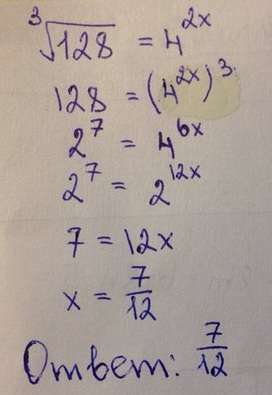 ³√128 = 4^{2x}
128 = (4^{2x})^3
2^7 = 4^{6x}
2^7 = 2^{12x}
7 = 12x
x = 7/12
Ответ: 7/12